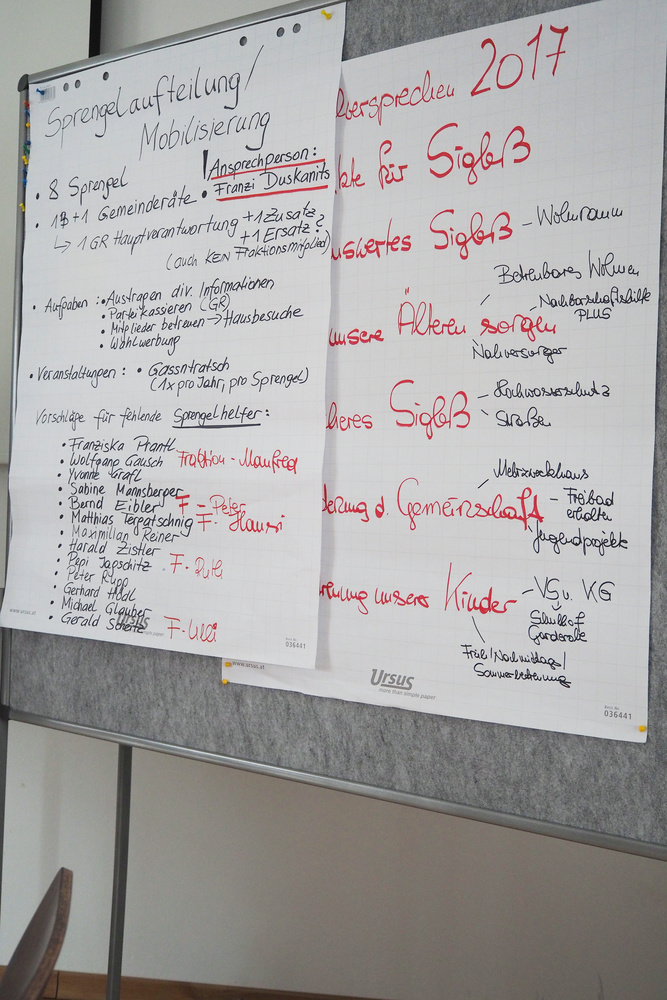 Sprengelaufteilung/
Mobilisierung
! Ansprechperson:
Franzi Duskanits
• 8 Sprengel
• 18+1 Gemeinderäte
↳ 1 GR Hauptverantwortung +1 Zusatz?
+1 Ersatz?
(auch KEIN Fraktionsmitglied)
• Aufgaben: • Austragen div. Informationen
• Parteikassieren (GR)
• Mitglieder betreuen → Hausbesuche
• Wahlwerbung
• Veranstaltungen: • Gassntratsch
(1x pro Jahr, pro Sprengel)
Vorschläge für fehlende Sprengelhelfer:
• Franziska Prantl
• Wolfgang Gausch Fraktion - Manfred
• Yvonne Grafl
• Sabine Mannsberger
• Bernd Eibler F - Peter
• Matthias Terpatschnig F - Hansi
• Maximilian Reiner
• Harald Zistler
• Pepi Japschitz F - Ruth
• Peter Rupp
• Gerhard Hodl
• Michael Glauber
• Gerald F - Ulli
www.ursus.at
Ursus
more than simple paper
036441
lversprechen 2017
kte für Sigleß
nswertes Sigleß - Wohnraum
Betreubares Wohnen
unsere Älteren sorgen
Nachbarschaftshilfe
PLUS
Nahversorger
heres Sigleß
- Hochwasserschutz
Straßen
derung d. Gemeinschaft
Mehrzweckhaus
- Freibad
erhalten
Jugendprojekte
reuung unserer Kinder - VS u. KG
Schulhof
Garderobe
Früh/Nachmittags/
Sommerbetreuung
www.ursus.at
Ursus
more than simple paper
036441